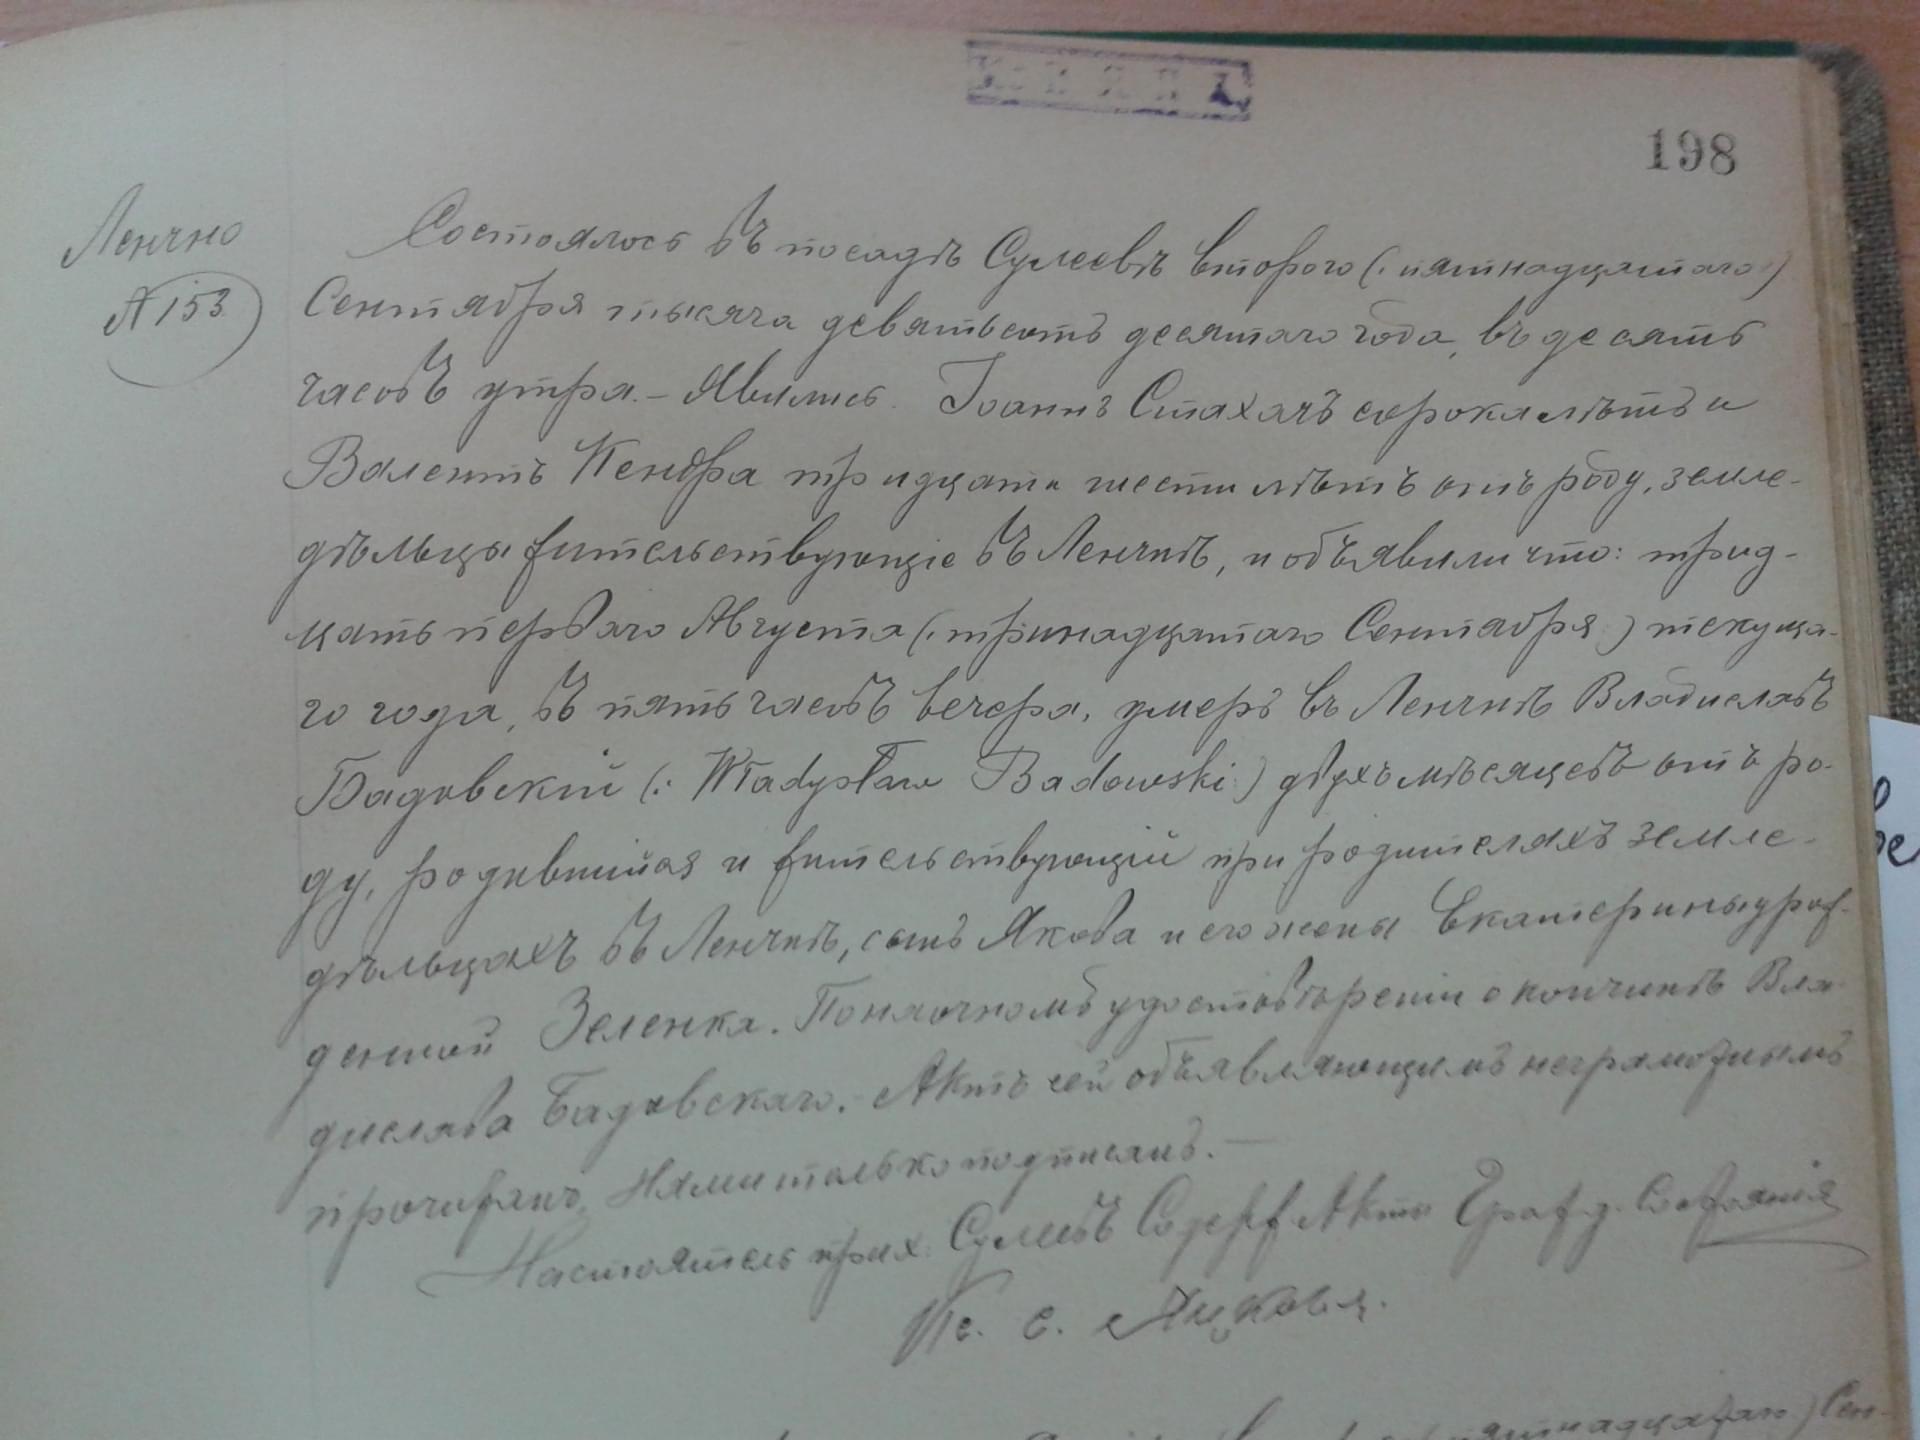 КОПІЯ
198
Ленчно
№ 153
Состоялось въ посадѣ Сулеевѣ второго (: пятнадцатаго :)
Сентября тысяча девятьсотъ десятаго года, въ десять
часовъ утра. – Явились Іоаннъ Стахачъ сорока лѣтъ и
Валентъ Кендра тридцати шести лѣтъ отъ роду, земле-
дѣльцы жительствующіе въ Ленчнѣ, и объявили что: трид-
цать перваго Августа (: тринадцатаго Сентября :) текуща-
го года, въ пять часовъ вечера, умеръ въ Ленчнѣ Владиславъ
Бадовскій (: Władysław Badowski :) двухъ мѣсяцевъ отъ ро-
ду, родившійся и жительствующій при родителяхъ земле-
дѣльцахъ въ Ленчнѣ, сынъ Якова и его жены Екатерины урож-
денной Зеленка. По наочномъ удостовѣреніи о кончинѣ Вла-
дислава Бадовскаго. Актъ сей объявляющимъ неграмотнымъ
прочитанъ, Нами только подписанъ. –
Настоятель прих. Сулеевъ Содерж Акты Гражд. Состоянія
Кс. С.
пятнадцатаго) Сен-